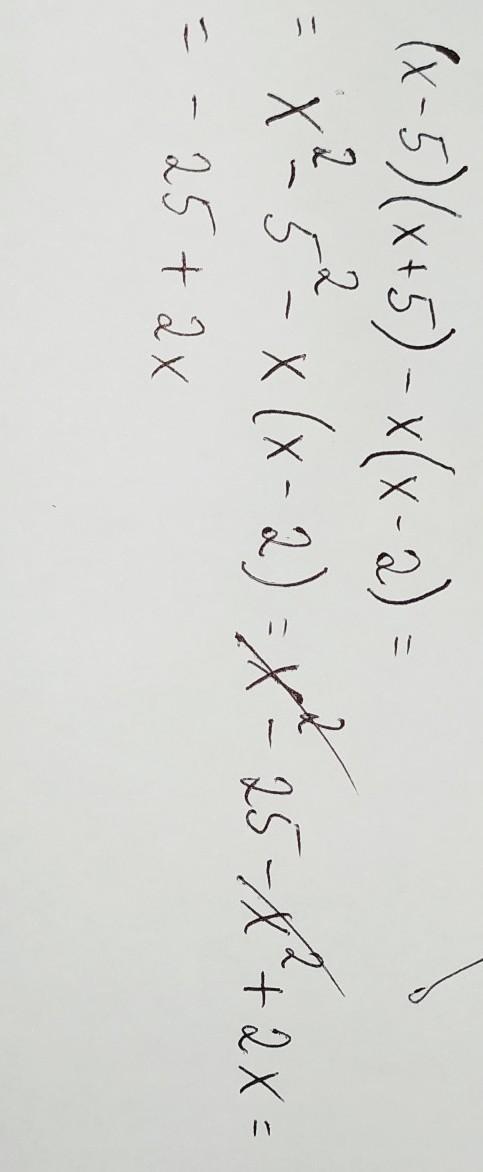 (x-5)(x+5)-x(x-2)=
= x²-5²-x(x-2)=x²-25-x²+2x=
= -25+2x